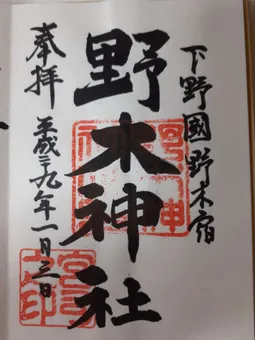 下野國野木宿
野木神社
奉拝
平成二九年一月三日